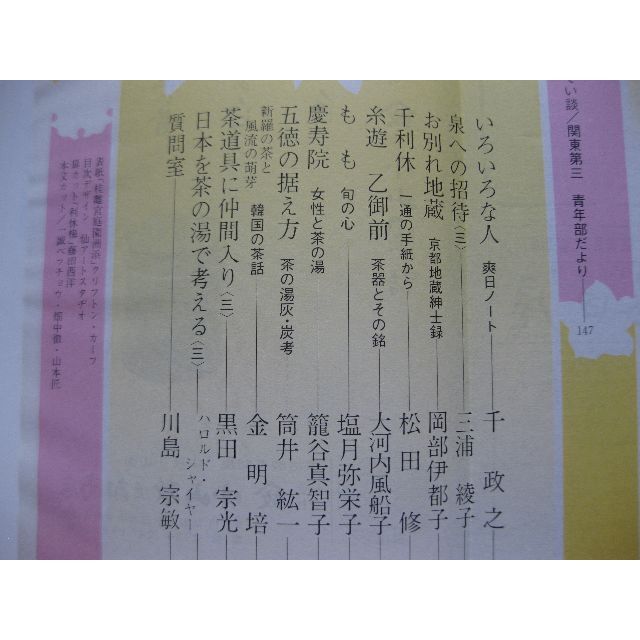 い談/関東第三 青年部だより――147
いろいろな人 爽日ノート――千 政之
泉への招待〈三〉――三浦 綾子
お別れ地蔵 京都地蔵紳士録――岡部伊都子
千利休 一通の手紙から――松田 修
糸遊 乙御前 茶器とその銘――大河内風船子
もも 旬の心――塩月弥栄子
慶寿院 女性と茶の湯――籠谷真智子
五徳の据え方 茶の湯灰・炭考――筒井 紘一
新羅の茶と
風流の萌芽 韓国の茶話――金 明培
茶道具に仲間入り〈三〉――黒田 宗光
日本を茶の湯で考える〈三〉――ハロルド・
シャイヤー
質問室――川島 宗敏
表紙「桂離宮庭園雨景」クリフトン・カーフ
目次デザイン 仙アートスタヂオ
扉カット「利休梅」藤沼西洋